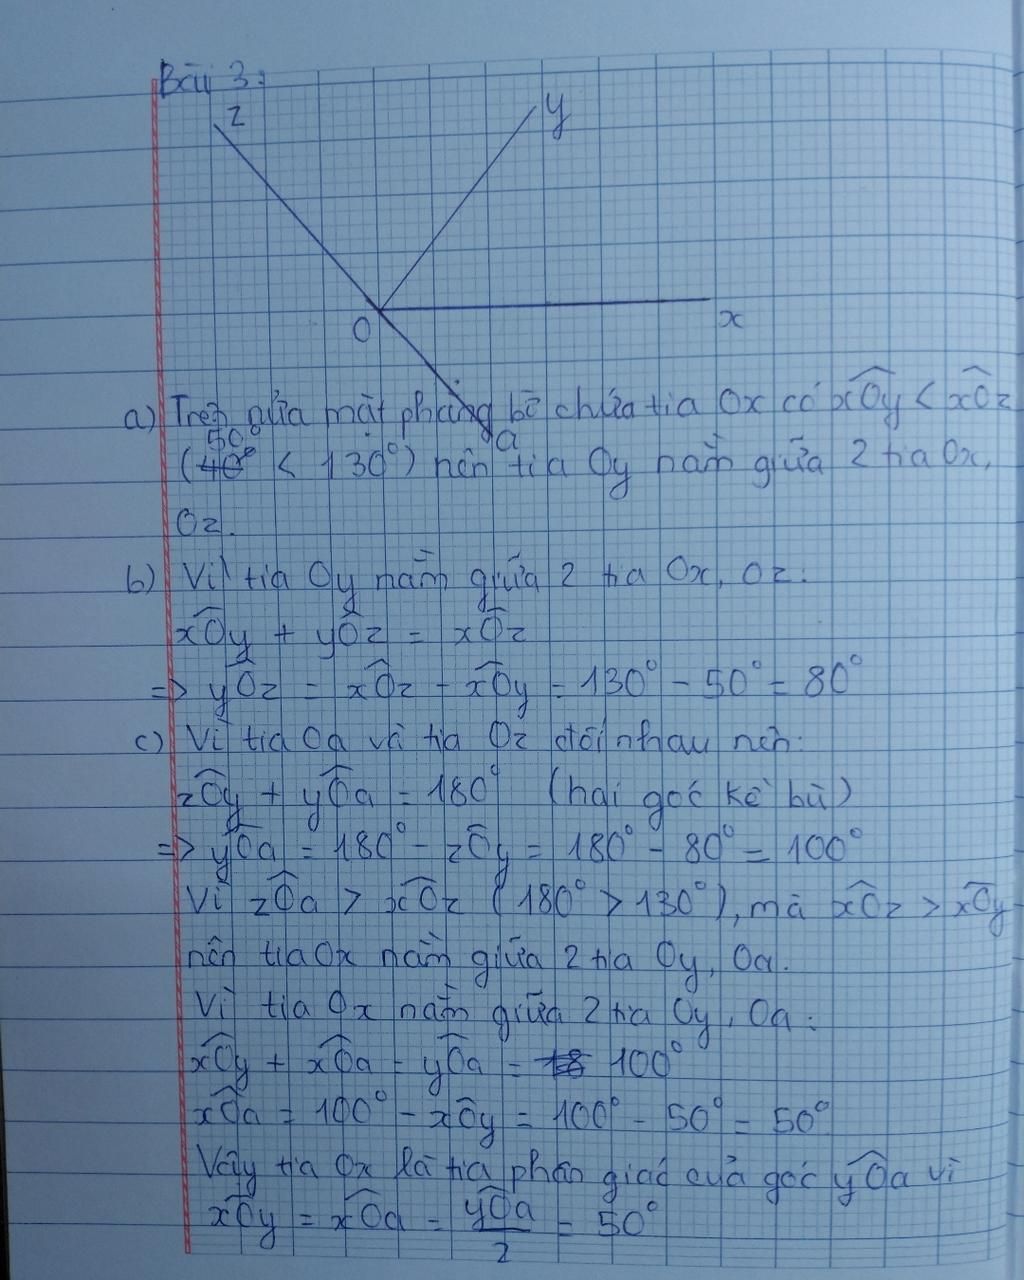 Bài 3:
z
y
O
x
a) Trên nửa mặt phẳng bờ chứa tia Ox có xÔy < xÔz
a
50°
(40° < 130°) nên tia Oy nằm giữa 2 tia Ox,
Oz.
b) Vì tia Oy nằm giữa 2 tia Ox, Oz:
xÔy + yÔz = xÔz
=> yÔz = xÔz - xÔy = 130° - 50° = 80°
c) Vì tia Oa và tia Oz đối nhau nên:
zÔy + yÔa = 180° (hai góc kề bù)
=> yÔa = 180° - zÔy = 180° - 80° = 100°
Vì zÔa > xÔz (180° > 130°), mà xÔz > xÔy
nên tia Ox nằm giữa 2 tia Oy, Oa.
Vì tia Ox nằm giữa 2 tia Oy, Oa:
xÔy + xÔa = yÔa = 100°
xÔa = 100° - xÔy = 100° - 50° = 50°
Vậy tia Ox là tia phân giác của góc yÔa vì
xÔy = xÔa = yÔa/2 = 50°